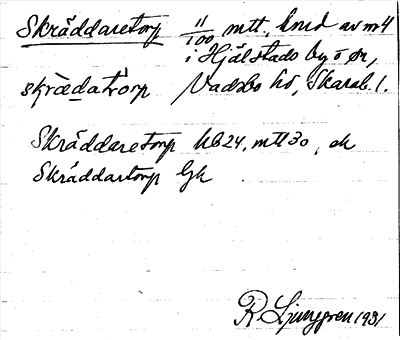 Skräddaretorp 11/100 mtl, knud av nr 4
i Hjälstads by o sn,
skrædatorp Vadsbo hd, Skarab. l.
Skräddaretorp hb 24, mtl 30, ek
Skräddartorp Gk
R Ljunggren 1931